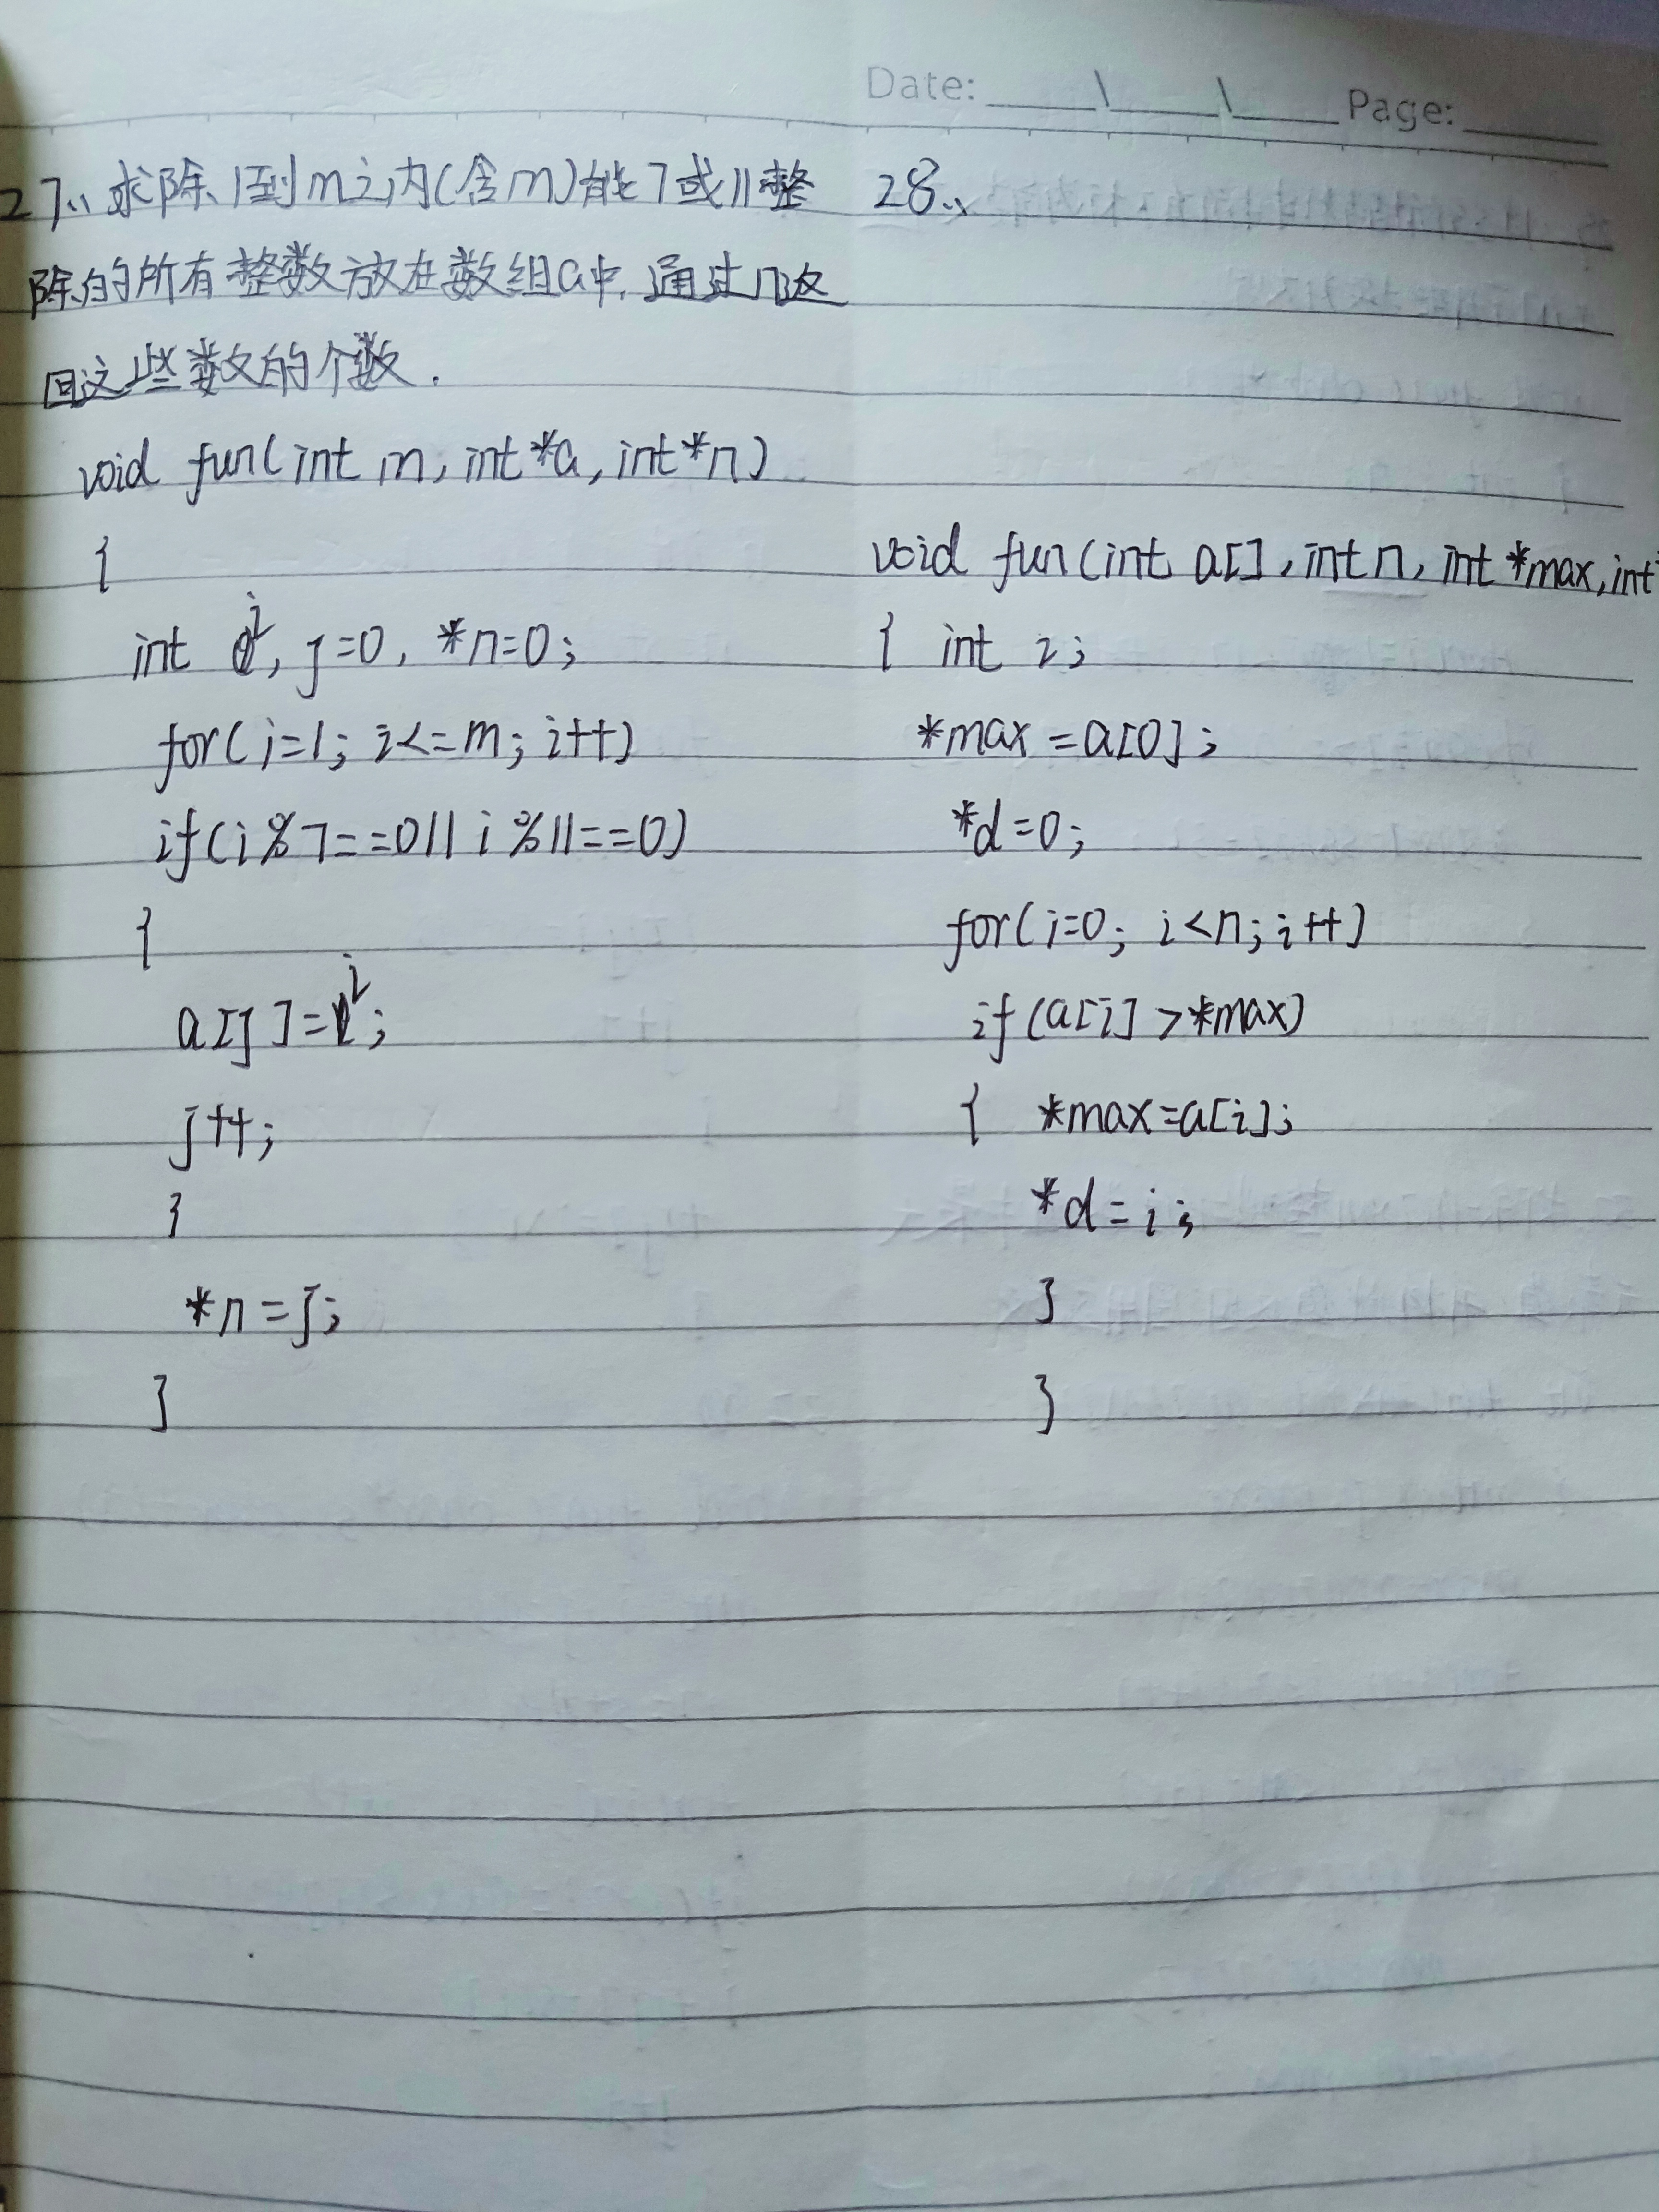 Date: \ \ Page:
27、求除1到m之内(含m)能7或11整
除的所有整数放在数组a中,通过n返
回这些数的个数.
void fun(int m, int*a, int*n)
{
int i, j=0, *n=0;
for(i=1; i<=m; i++)
if(i%7==0||i%11==0)
{
a[j]=i;
j++;
}
*n=j;
}
28、
void fun(int a[], int n, int *max, int
{ int i;
*max=a[0];
*d=0;
for(i=0; i<n; i++)
if(a[i]>*max)
{ *max=a[i];
*d=i;
}
}